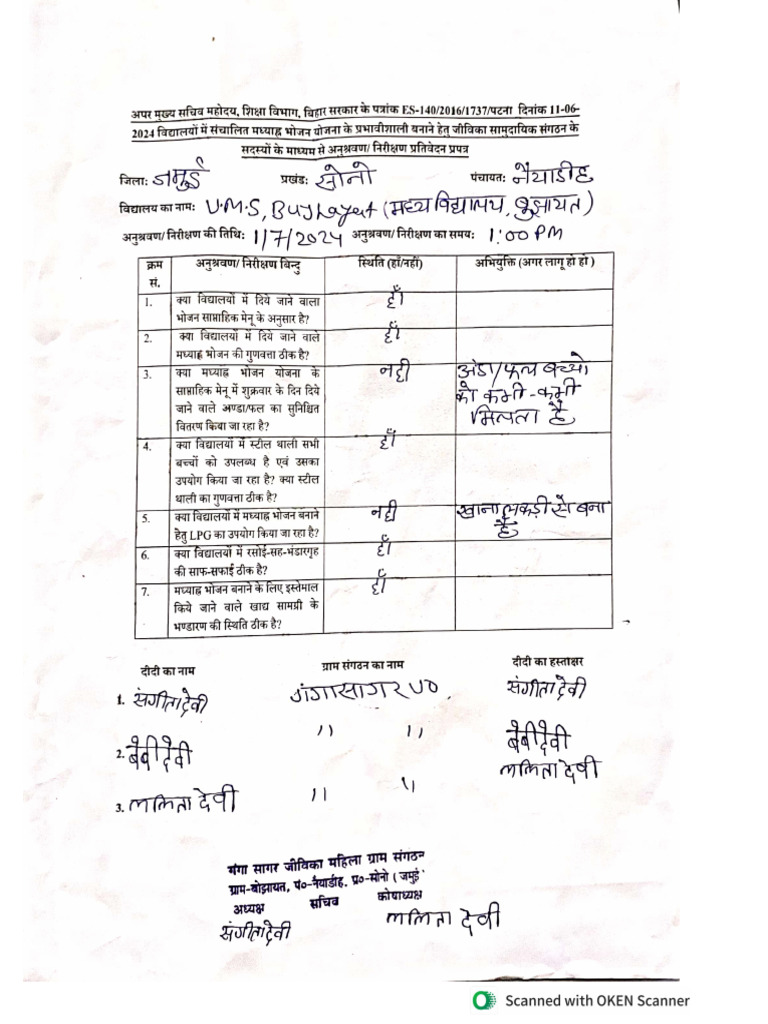 अपर मुख्य सचिव महोदय, शिक्षा विभाग, बिहार सरकार के पत्रांक ES-140/2016/1737/पटना दिनांक 11-06-
2024 विद्यालयों में संचालित मध्याह्न भोजन योजना के प्रभावीशाली बनाने हेतु जीविका सामुदायिक संगठन के
सदस्यों के माध्यम से अनुश्रवण/ निरीक्षण प्रतिवेदन प्रपत्र
जिला: जमुई प्रखंड: सोनो पंचायत: नैयाडीह
विद्यालय का नाम: U.M.S, (मध्य विद्यालय,
अनुश्रवण/ निरीक्षण की तिथि: 1/7/2024 अनुश्रवण/ निरीक्षण का समय: 1:00 PM
क्रम अनुश्रवण/ निरीक्षण बिन्दु स्थिति (हाँ/नहीं) अभियुक्ति (अगर लागू हो हो )
सं.
1. क्या विद्यालयों में दिये जाने वाला हाँ
भोजन साप्ताहिक मेनू के अनुसार है?
2. क्या विद्यालयों में दिये जाने वाले हाँ
मध्याह्न भोजन की गुणवत्ता ठीक है?
3. क्या मध्याह्न भोजन योजना के नही अंडा/फल बच्चो
साप्ताहिक मेनू में शुक्रवार के दिन दिये को कभी-कभी
जाने वाले अण्डा/फल का सुनिश्चित मिलता है
वितरण किया जा रहा है?
4. क्या विद्यालयों में स्टील थाली सभी हाँ
बच्चों को उपलब्ध है एवं उसका
उपयोग किया जा रहा है? क्या स्टील
थाली का गुणवत्ता ठीक है?
5. क्या विद्यालयों में मध्याह्न भोजन बनाने नही खाना लकड़ी से बना
हेतु LPG का उपयोग किया जा रहा है? है
6. क्या विद्यालयों में रसोई-सह-भंडारगृह हाँ
की साफ-सफाई ठीक है?
7. मध्याह्न भोजन बनाने के लिए इस्तेमाल हाँ
किये जाने वाले खाद्य सामग्री के
भण्डारण की स्थिति ठीक है?
दीदी का नाम ग्राम संगठन का नाम दीदी का हस्ताक्षर
1. संगीता देवी गंगासागर VO. संगीता देवी
2. बेबी देवी " " बेबी देवी
3. ललिता देवी " " ललिता देवी
गंगा सागर जीविका महिला ग्राम संगठन
ग्राम-बोझायत, पं०-नैयाडीह, प्र०-सोनो (जमुई
अध्यक्ष सचिव कोषाध्यक्ष
संगीता देवी ललिता देवी
Scanned with OKEN Scanner